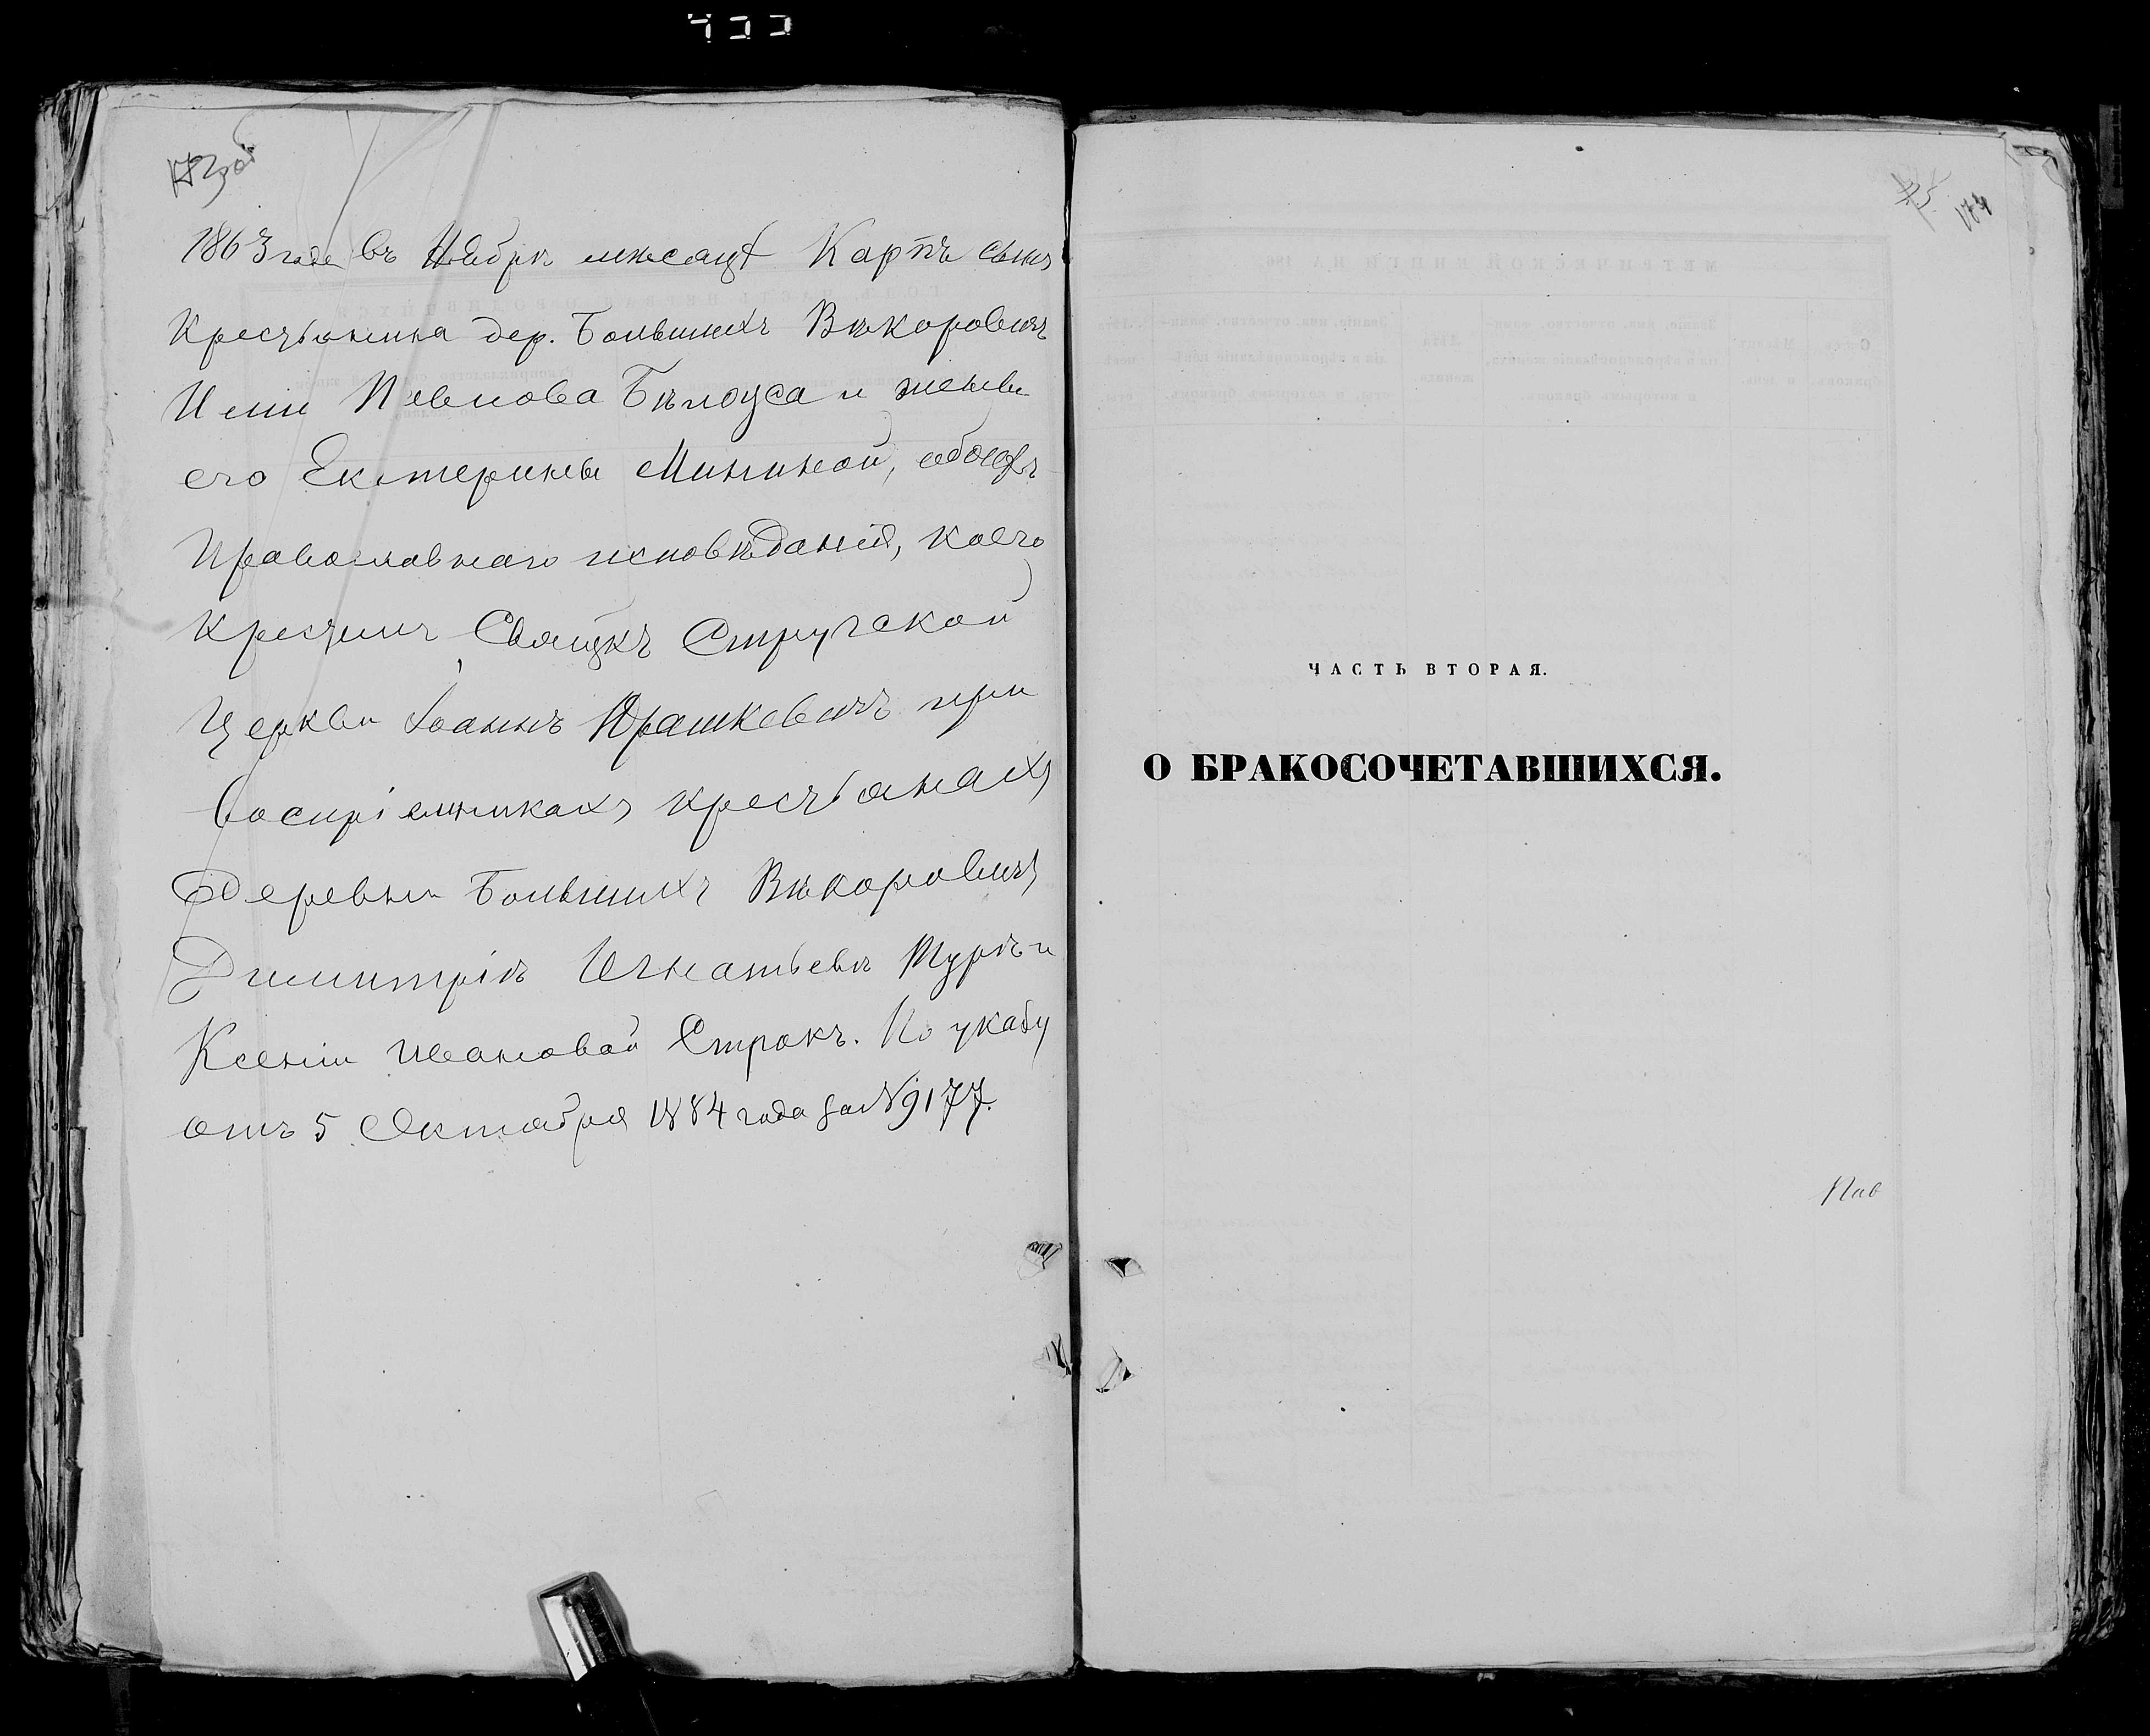 173 об
1863 года въ Ноябрѣ мѣсяцѣ Карпъ сынъ
Крестьянина дер. Большихъ Вѣкоровичъ
Павлова Бѣлоуса и жены
его Екатерины Мининой, обоихъ
Православнаго исповѣданія, коего
крестилъ Стругской
Церкви Іоаннъ Юрашкевичъ при
воспріемникахъ крестьянахъ
деревни Большихъ Вѣкоровичъ
Димитріѣ Игнатьевѣ Турѣ и
Ксеніи Ивановой Строкъ. По указу
отъ 5 Октября 1884 года за № 9177.
174
ЧАСТЬ ВТОРАЯ.
О БРАКОСОЧЕТАВШИХСЯ.